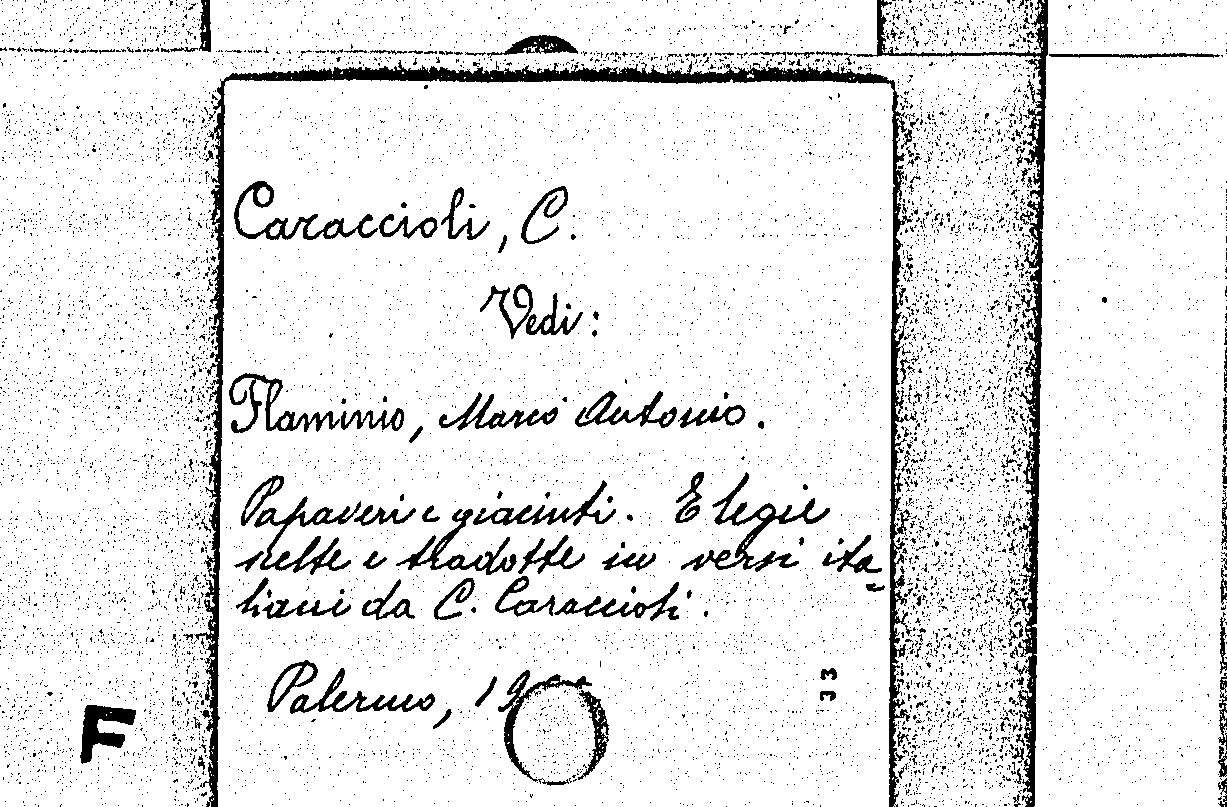 Caraccioli, C.
Vedi:
Flaminio, Marco Antonio.
Papaveri e giacinti. Elegie
scelte e tradotte in versi ita-
liani da C. Caraccioli.
Palermo,
33
F